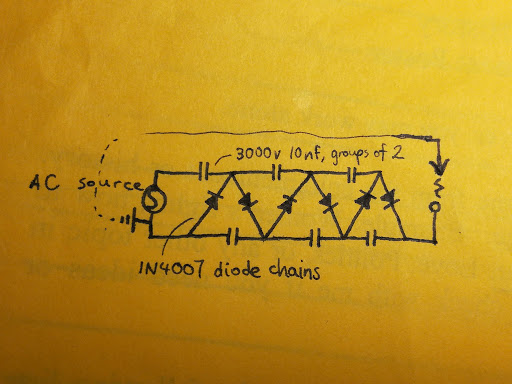 3000v 10nf, groups of 2
AC source
1N4007 diode chains